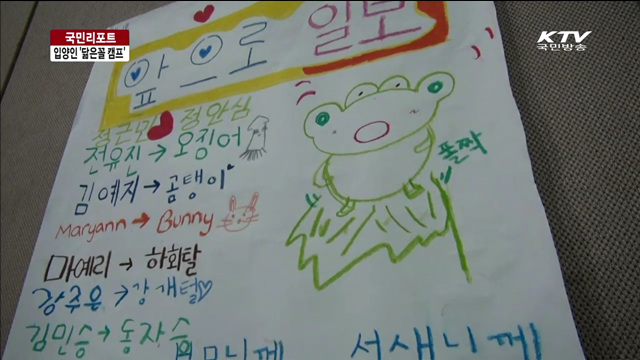 국민리포트
입양인 '닮은꼴 캠프'
KTV
국민방송
앞으로 일보
정안심
전유진→오징어
폴짝
김예지→곰탱이
Maryann→Bunny
마예리→하회탈
강주은→강개털
김민승→동자승
서새니께